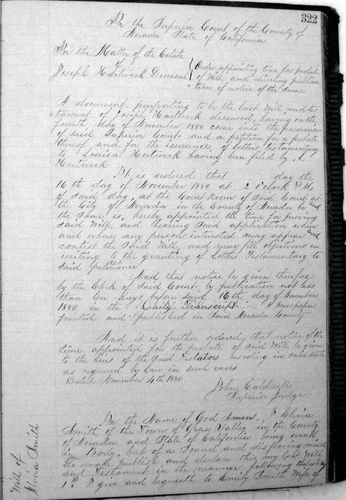 322
In the Superior Court of the County of
Nevada State of California
In the Matter of the Estate
of
Joseph Hartwick Deceased
Order appointing time for probate
of Will, and directing publica
tion of notice of the Same
A document, purporting to be the last Will and tes
tament of Joseph Hartwick deceased, having on the
fourth day of November 1880 come into the possession
of said Superior Court and a petition for probate
thereof, and for the issuance of letters testamentary
to Louisa Hartwick having been filed by
Hartwick
It is ordered that day the
16th day of November 1880 at 2 o'clock P.M.
of said day, at the Court Room of said Court at
the City of Nevada in the County of Nevada be and
the same is, hereby appointed the time for proving
said Will, and hearing said application when
and where any person interested may appear and
contest the said Will, and may file objections in
writing to the granting of letters Testamentary to
said petitioner.
And that notice be given thereof
by the Clerk of said Court by publication not less
than ten days before said 16th day of November
1880 in the "Daily Transcript" a newspaper
printed and published in said Nevada County
And it is further ordered that notice of the
time appointed for the probate of said Will be given
to the heirs of the said Testator residing in said State
as required by law in such cases
Dated November 4th 1880
John Caldwell
Superior Judge
Will of
Smith
In the Name of God Amen. I
Smith of the Town of Grass Valley in the County
of Nevada and State of California being weak
in Body, but of a Sound and disposing mind
do make publish and declare this my last Will
and Testament in the manner following that is to say
1st I give and bequeath to Emily Smith Wife of